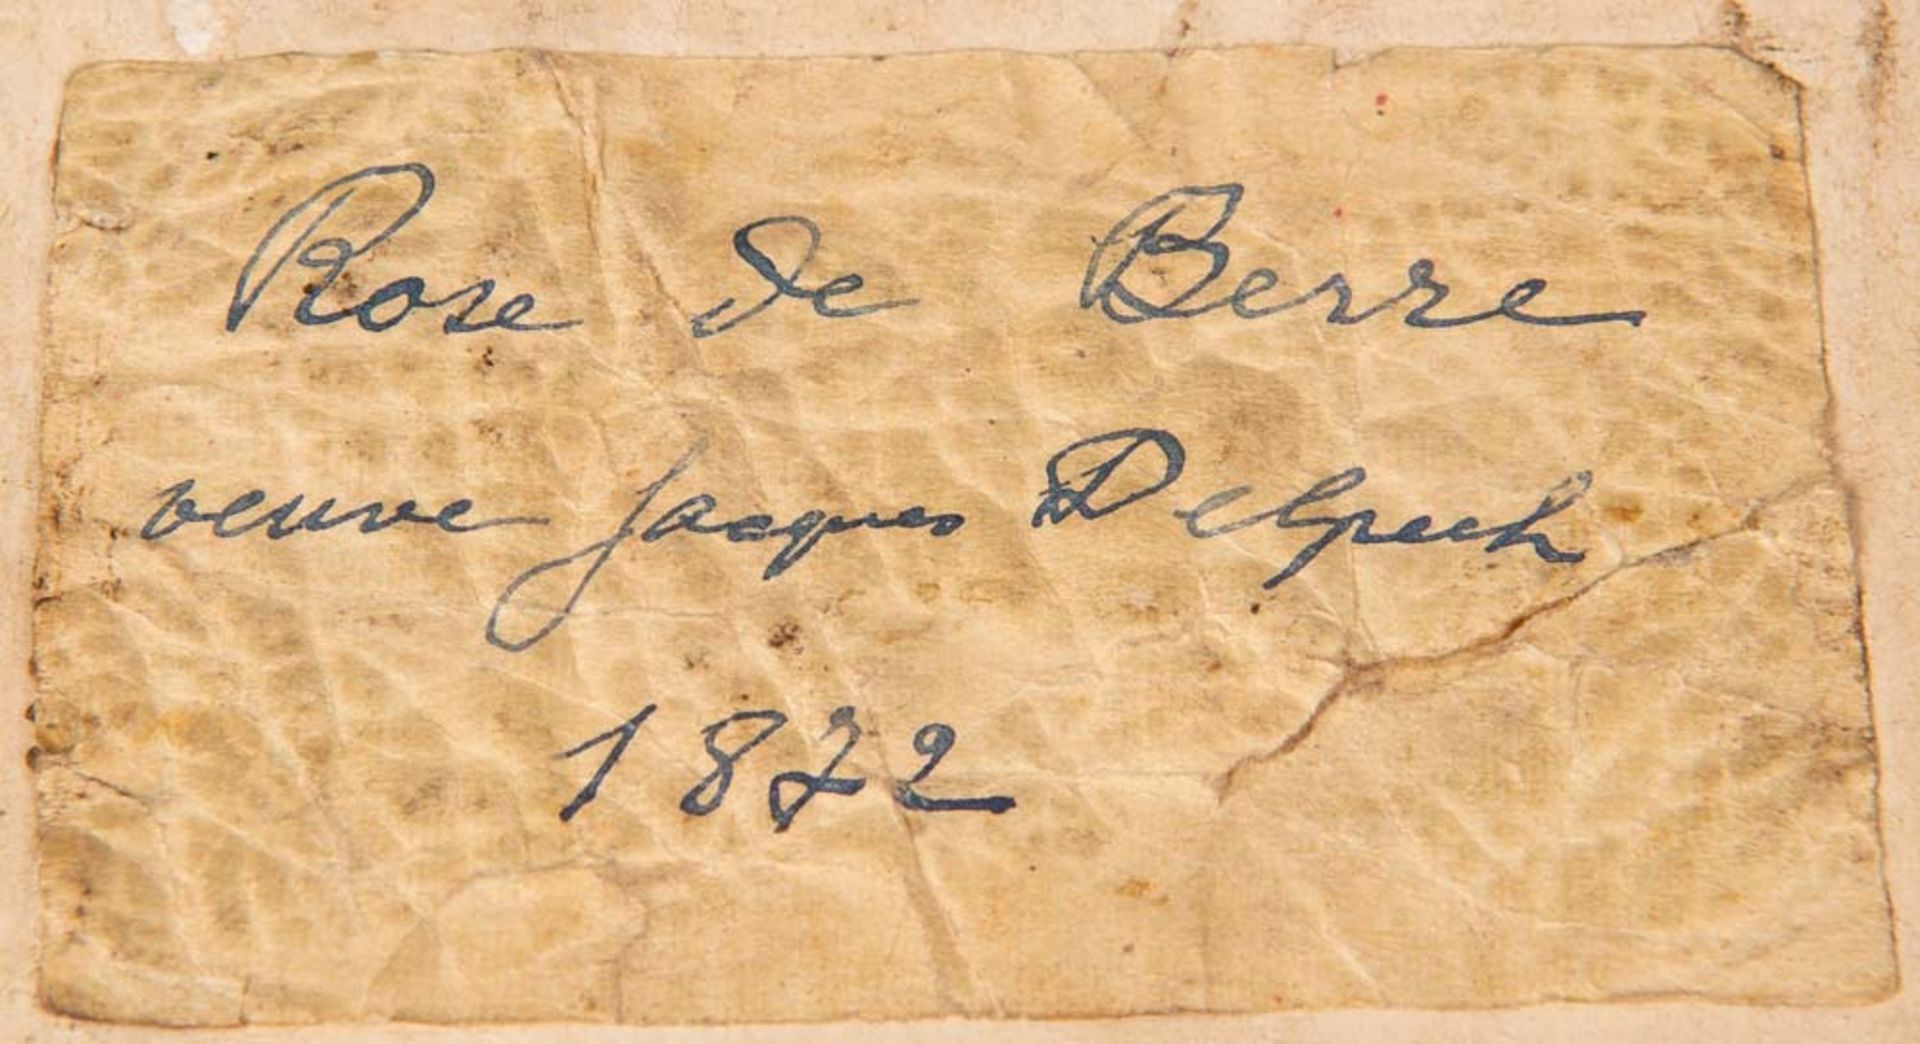 Rose de Berre
veuve Jacques Delpech
1872